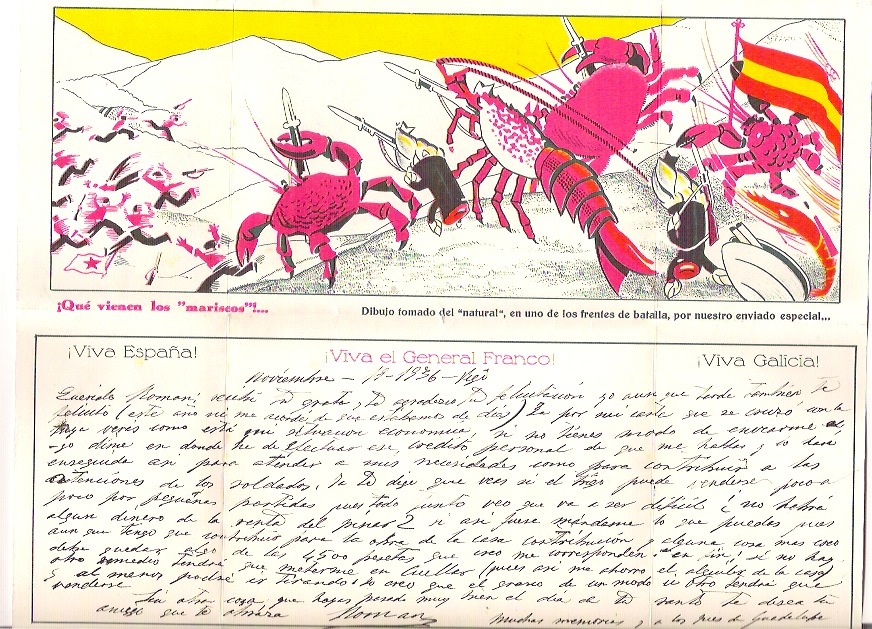 ¡Qué vienen los "mariscos"!...
Dibujo tomado del "natural", en uno de los frentes de batalla, por nuestro enviado especial...
¡Viva España!
¡Viva el General Franco!
¡Viva Galicia!
Noviembre - 17-1936 - Vigo
Querido Roman; recibi tu grata, te agradezco tu felicitación yo aunque tarde tambien te
felicito (este año ni me acordé de que estabamos de dias) Ya por mi carta que se cruzó con la
tuya veras como está mi situacion economica, si no tienes modo de enviarme
dime en donde he de efectuar ese credito personal de que me hablas y lo haré
enseguida asi para atender a mis necesidades como para contribuir a las
atenciones de los soldados. Ya te dije que veas si el trigo puede venderse poco a
poco por pequeñas partidas pues todo junto veo que va a ser dificil ¿no habrá
algun dinero de la renta del pinar? si asi fuese mándame lo que puedas pues
aunque tengo que contribuir para la obra de la casa contribución y alguna cosa mas creo
debe quedar algo de las 4,500 pesetas que creo me corresponden. en fin! si no hay
otro remedio tendré que meterme en Cuellar (pues asi me ahorro el alquiler de la casa)
y al menos podré ir tirando. Yo creo que el grano de un modo u otro tendrá que
venderse
Sin otra cosa que hayas pasado muy bien el dia de tu santo te desea tu
amigo que te abraza Roman
muchas memorias y a los pues de Guadalupe